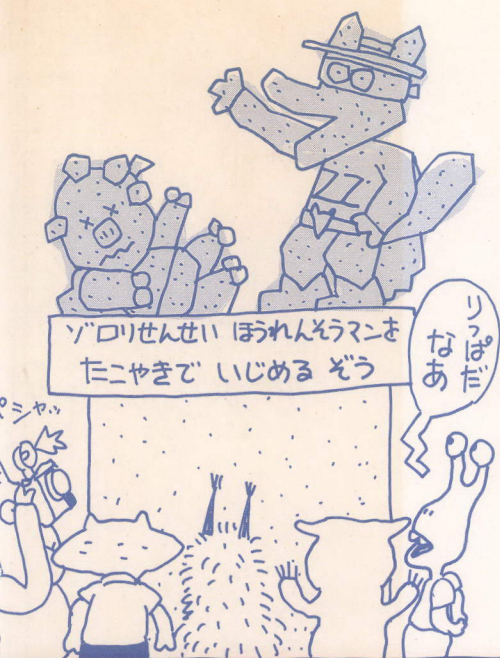 ゾロリせんせい ほうれんそうマンを
たこやきで いじめる ぞう
りっぱだ
なあ
パシャッ